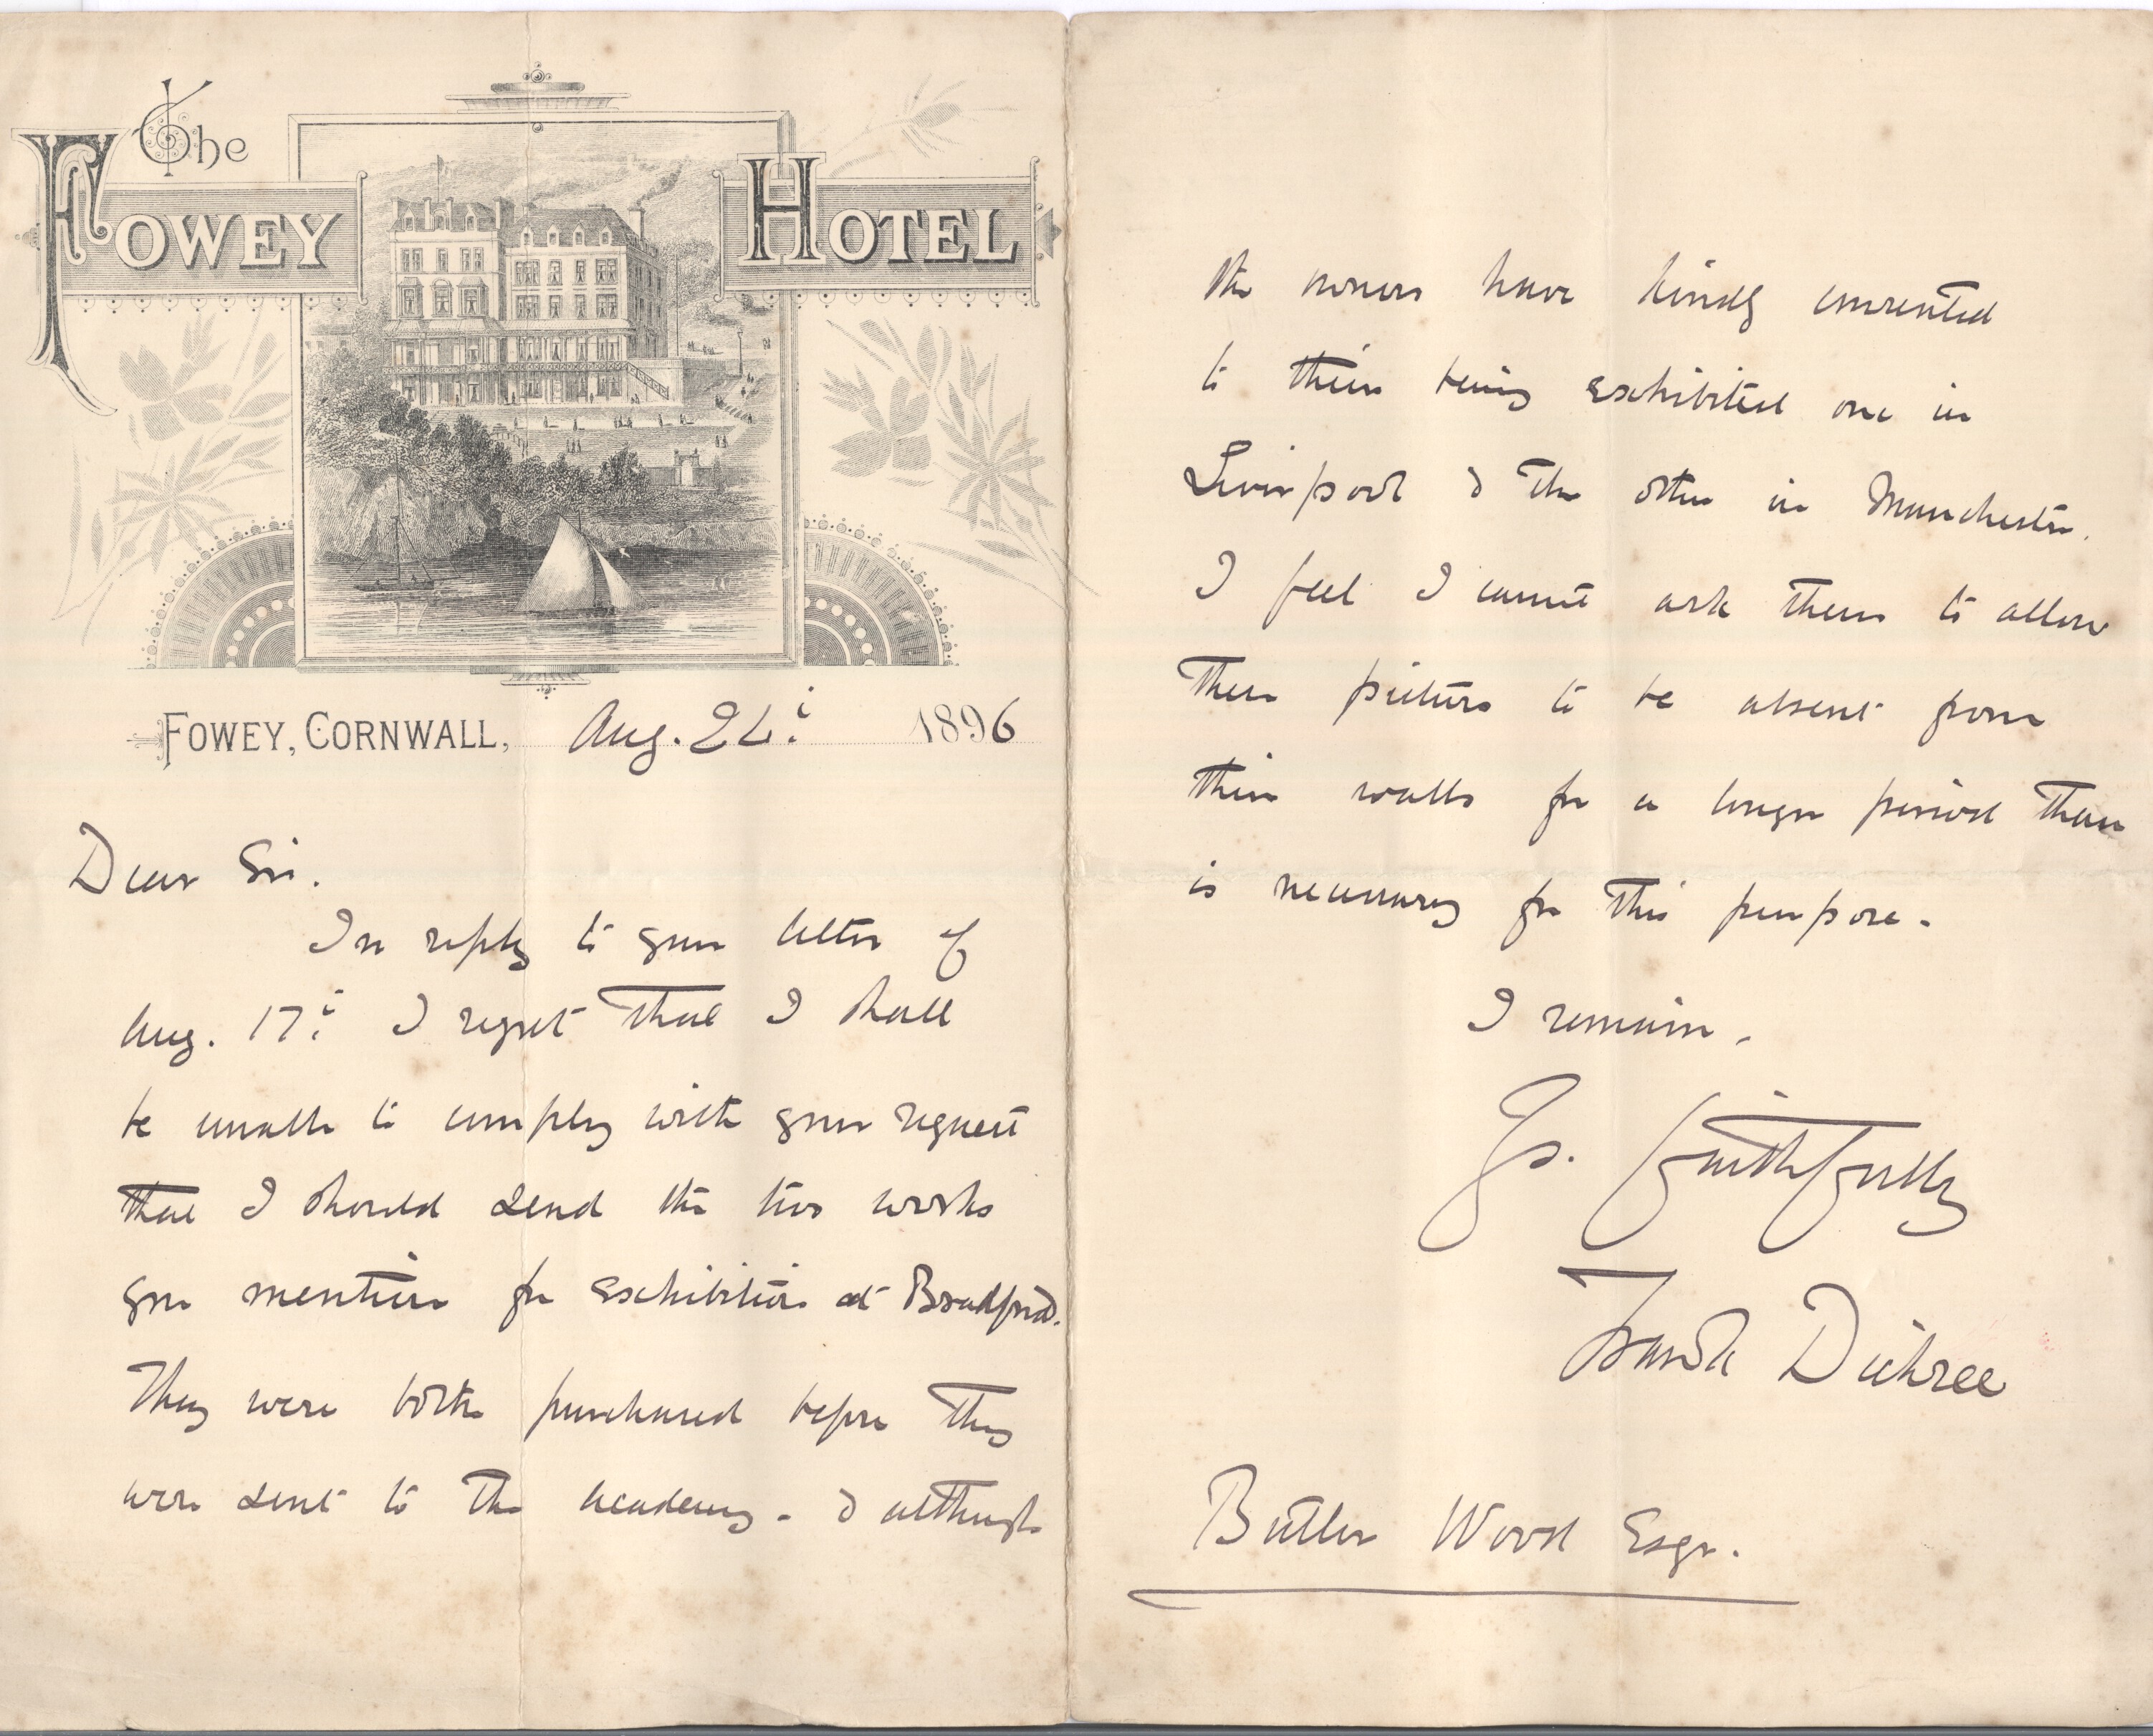 The
FOWEY HOTEL
FOWEY, CORNWALL, Aug. 24. 1896
Dear Sir.
In reply to your letter of
Aug. 17. I regret that I shall
be unable to comply with your request
that I should send the two works
you mention for exhibition at Bradford.
They were both purchased before they
were sent to the academy - & although
the owners have kindly consented
to their being exhibited one in
Liverpool & the other in Manchester.
I feel I cannot ask them to allow
their pictures to be absent from
their walls for a longer period than
is necessary for this purpose.
I remain,
Ys. faithfully
Frank Dicksee
Butler Wood Esqr.